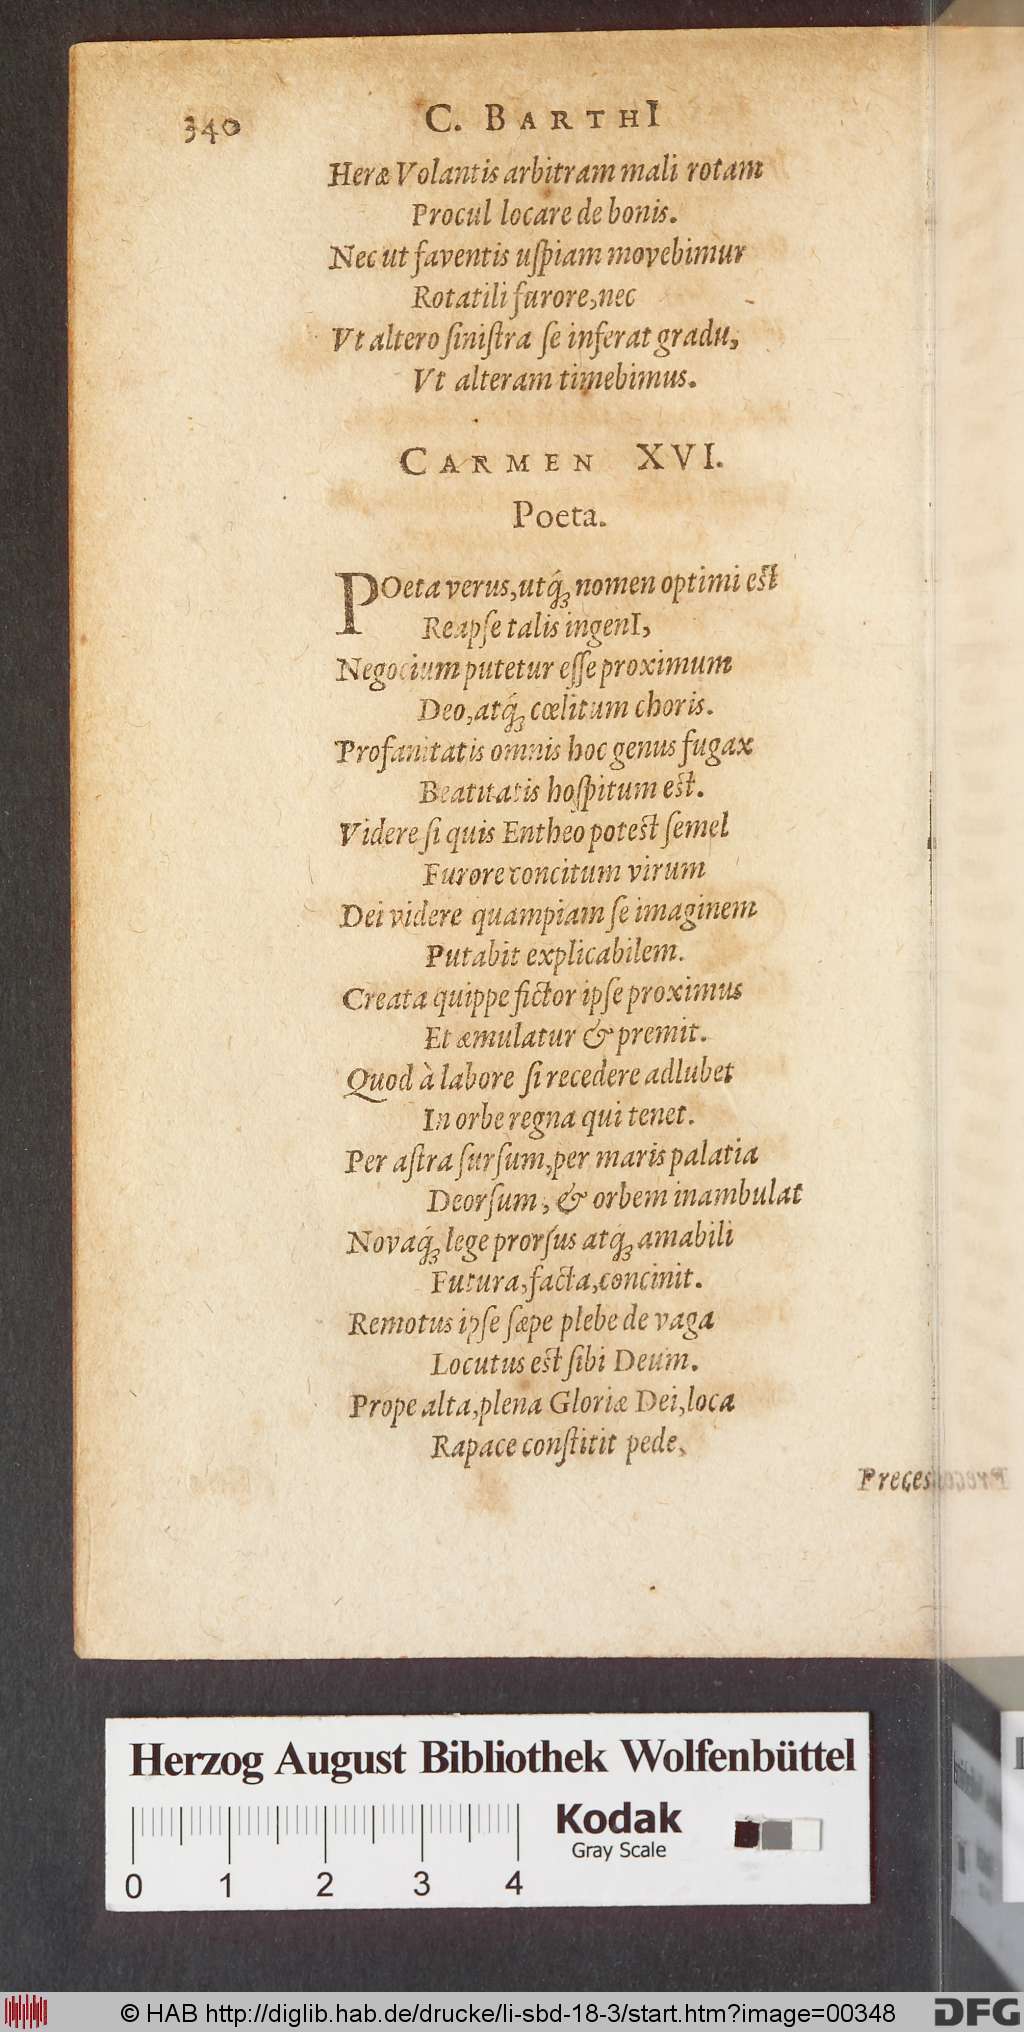 340 C. BARTHI
Heræ Volantis arbitram mali rotam
Procul locare de bonis.
Nec ut faventis uſpiam movebimur
Rotatili furore, nec
Vt altero ſiniſtra ſe inferat gradu,
Vt alteram timebimus.
CARMEN XVI.
Poeta.
POeta verus, utq́; nomen optimi est
Reapſe talis ingenI,
Negocium putetur eſſe proximum
Deo, atq́; cœlitum choris.
Profanitatis omnis hoc genus fugax
Beatitatis hoſpitum est.
Videre ſi quis Entheo potest ſemel
Furore concitum virum
Dei videre quampiam ſe imaginem
Putabit explicabilem.
Creata quippe fictor ipſe proximus
Et æmulatur & premit.
Quod à labore ſi recedere adlubet
In orbe regna qui tenet.
Per aſtra ſurſum, per maris palatia
Deorſum, & orbem inambulat
Novaq́; lege prorſus atq́; amabili
Futura, facta, concinit.
Remotus ipſe ſæpe plebe de vaga
Locutus est ſibi Deum.
Prope alta, plena Gloriæ Dei, loca
Rapace conſtitit pede,
Preces
Herzog August Bibliothek Wolfenbüttel
Kodak
Gray Scale
0 1 2 3 4
© HAB http://diglib.hab.de/drucke/li-sbd-18-3/start.htm?image=00348
DFG